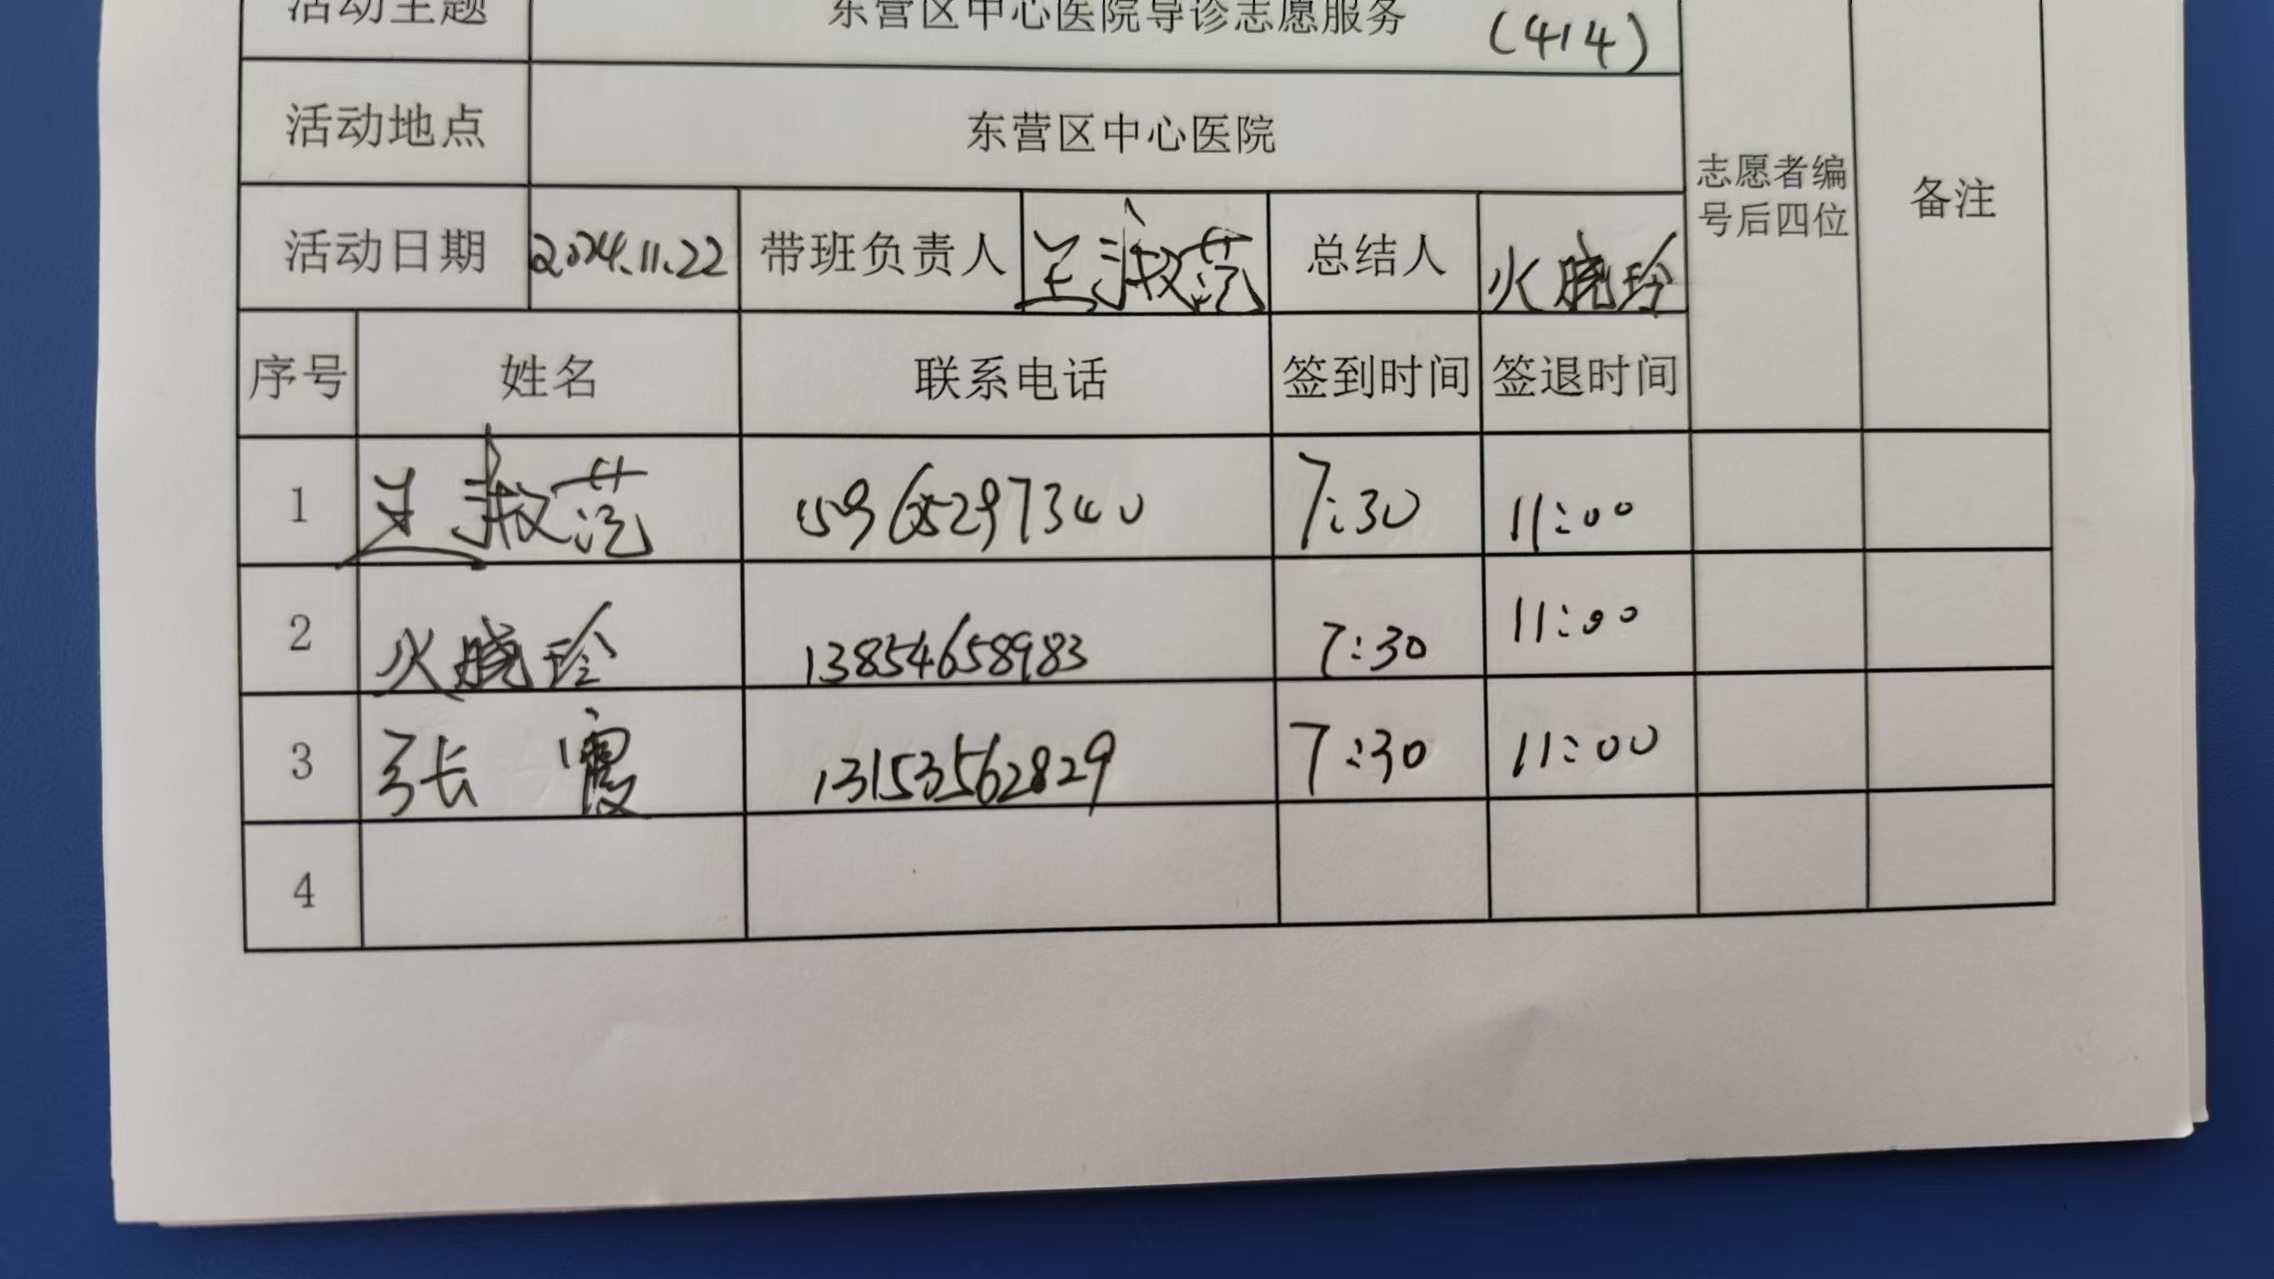 活动主题 东营区中心医院导诊志愿服务 (414)
活动地点 东营区中心医院 志愿者编号后四位 备注
活动日期 2024.11.22 带班负责人 总结人 火晓玲
序号 姓名 联系电话 签到时间 签退时间
1 15965297340 7:30 11:00
2 火晓玲 13854658983 7:30 11:00
3 张霞 13153562829 7:30 11:00
4